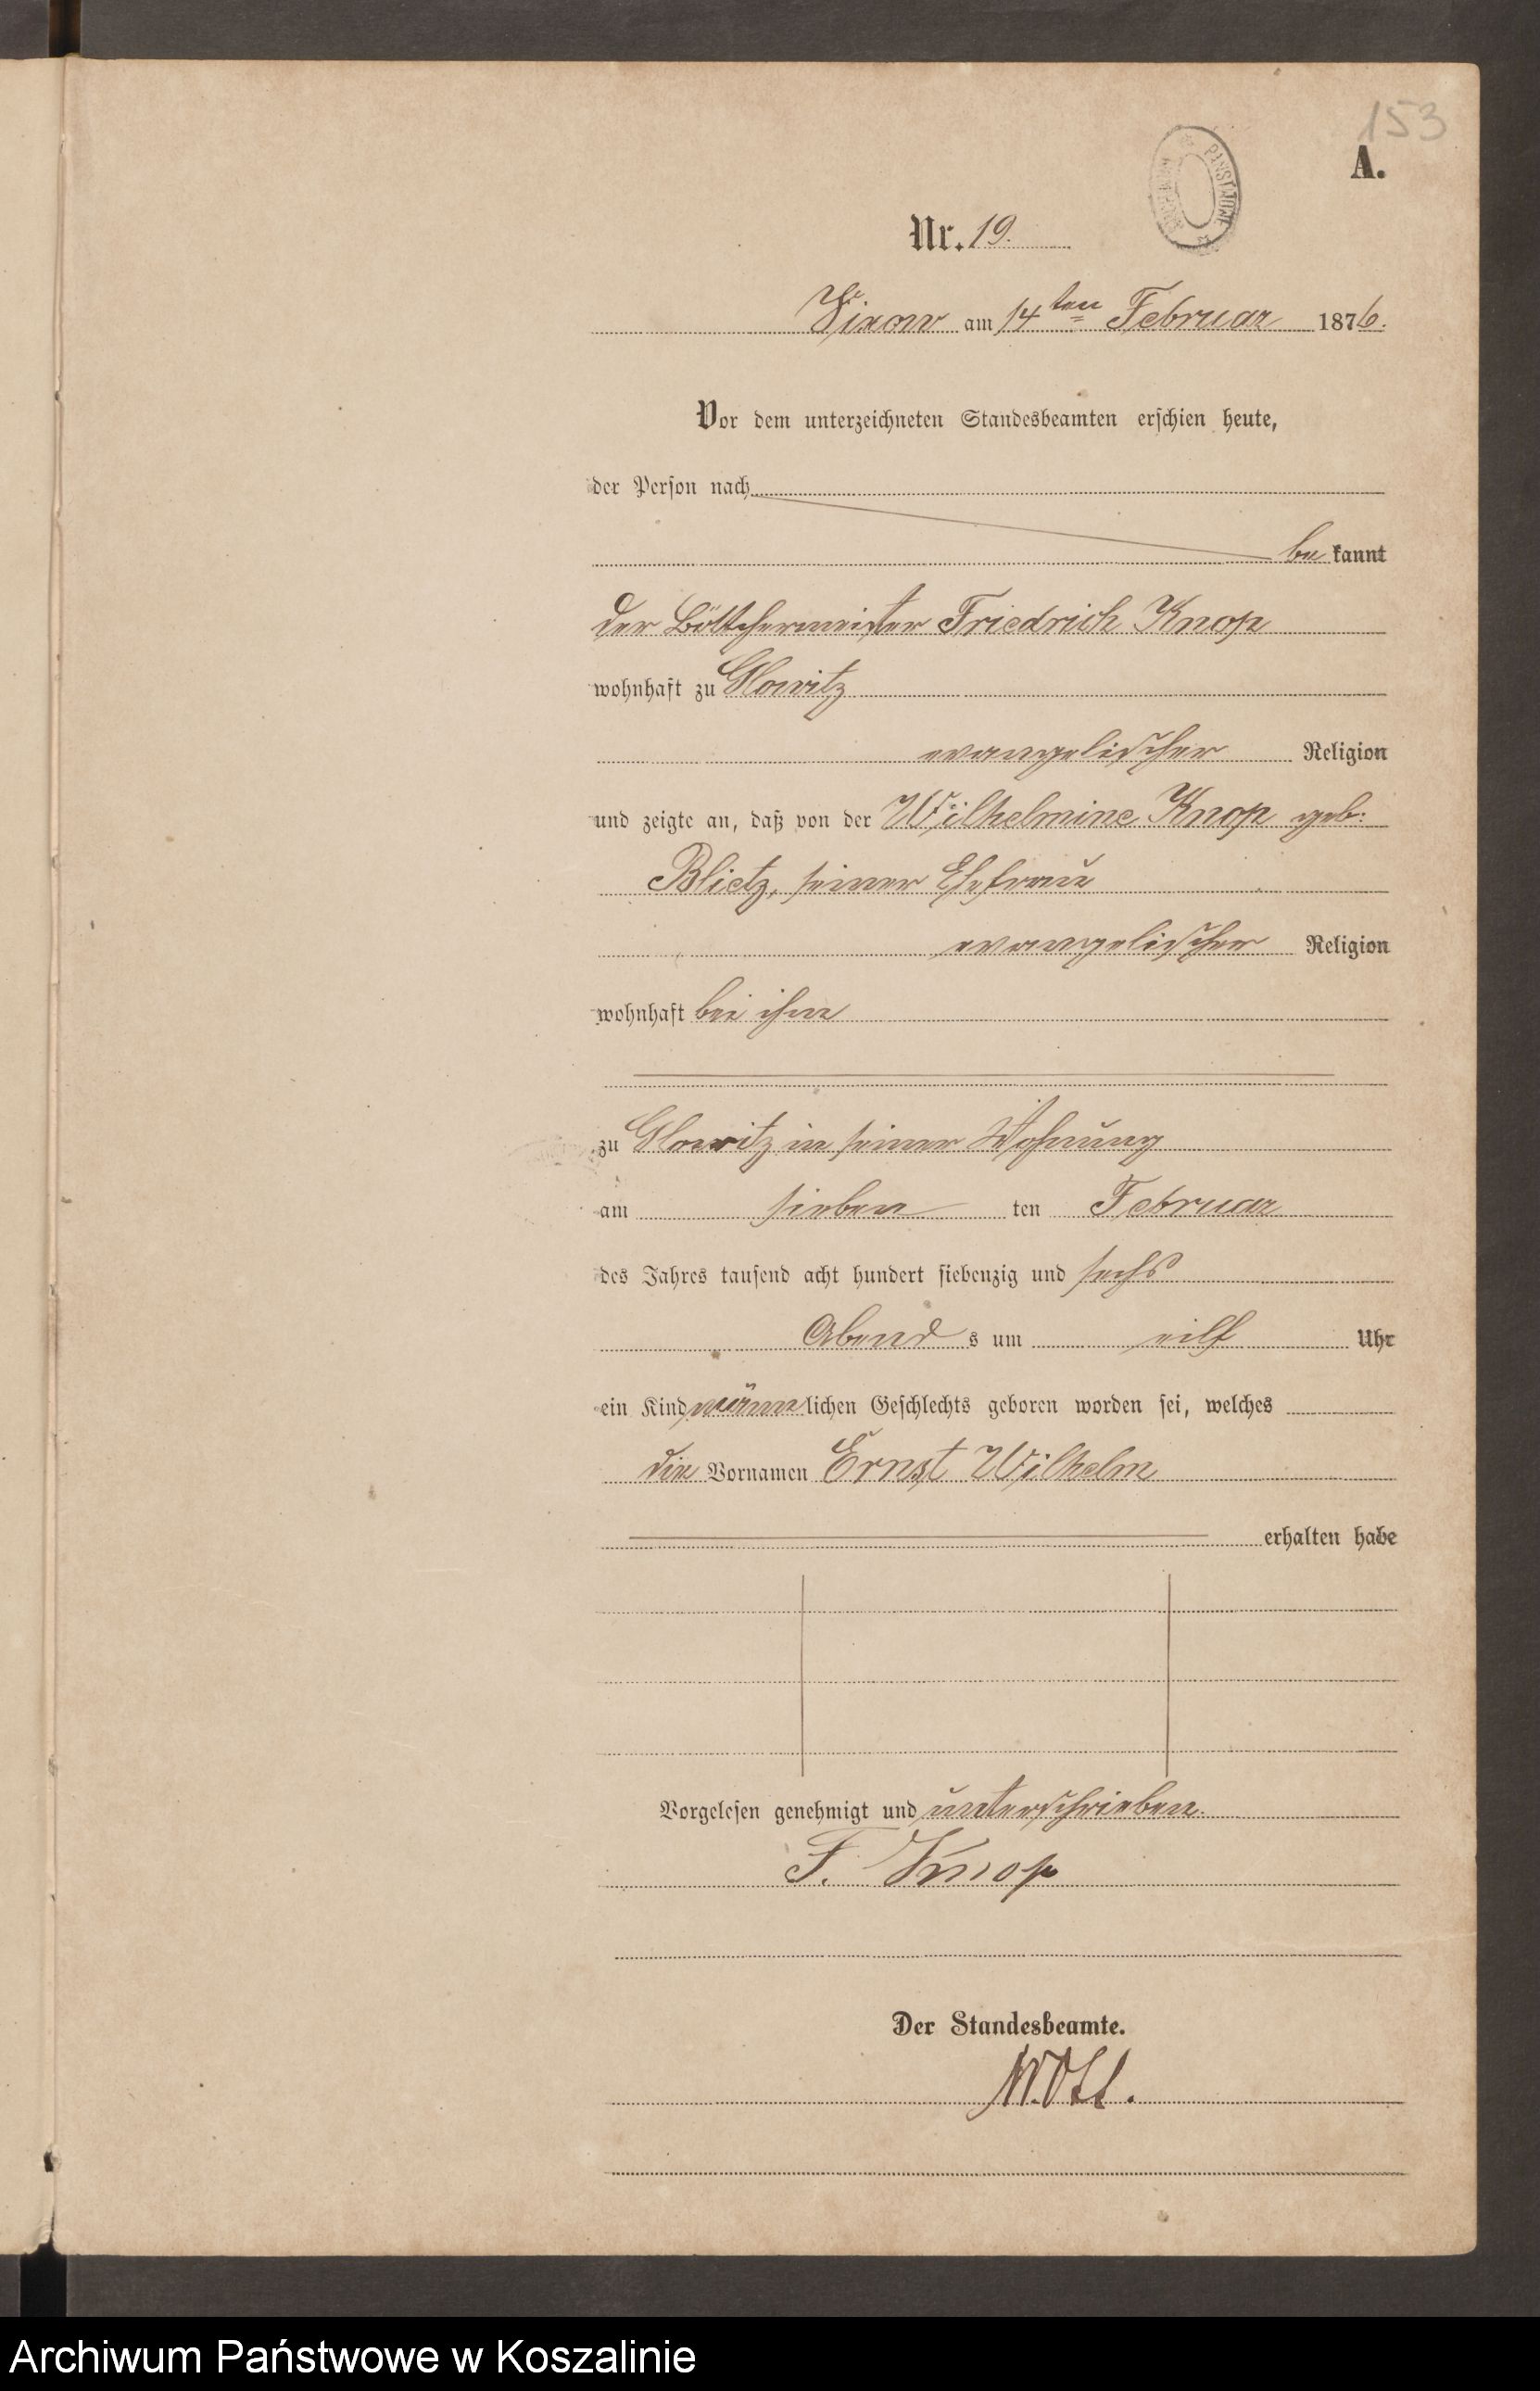 153
A.
ARCHIWUM PAŃSTWOWE
Nr. 19.
Vixow am 14ten Februar 1876.
Vor dem unterzeichneten Standesbeamten erschien heute,
der Person nach
be kannt
der Böttchermeister Friedrich Knop
wohnhaft zu Glowitz
evangelischer Religion
und zeigte an, daß von der Wilhelmine Knop geb.
Blietz, seiner Ehefrau
evangelischer Religion
wohnhaft bei ihm
zu Glowitz in seiner Wohnung
am sieben ten Februar
des Jahres tausend acht hundert siebenzig und sechs
Abend s um eilf Uhr
ein Kind männlichen Geschlechts geboren worden sei, welches
die Vornamen Ernst Wilhelm
erhalten habe
Vorgelesen genehmigt und unterschrieben.
F. Knop
Der Standesbeamte.
Archiwum Państwowe w Koszalinie